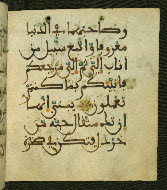 وصاحبهما في الدنيا
معروفا واتبع سبيل من
أناب إلي ثم إلي مرجعكم
فأنبئكم بما كنتم
تعملون يبني إنها
إن تك مثقال حبة من
خردل فتكن في صخرة